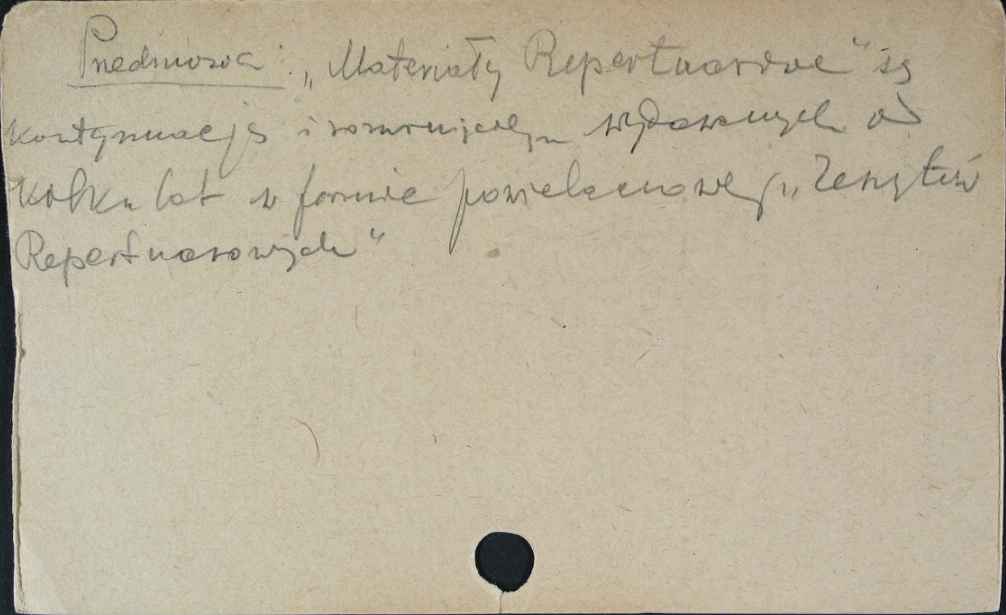 Przedmowa: „Materiały Repertuarowe" są
kontynuacją i rozwinięciem wydawanych od
kilku lat w formie powielaczowej „Zeszytów
Repertuarowych"